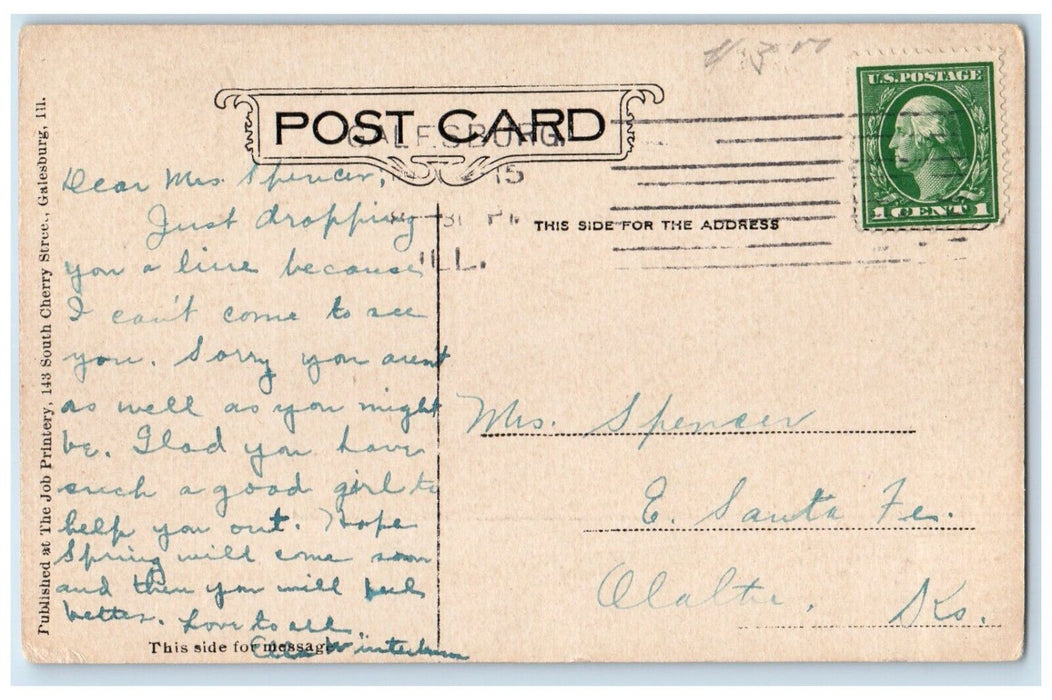 POST CARD
GALESBURG
15
ILL.
U.S. POSTAGE
1 CENT 1
THIS SIDE FOR THE ADDRESS
Published at The Job Printery, 143 South Cherry Street., Galesburg, Ill.
Dear Mrs. Spencer,
Just dropping
you a line because
I can't come to see
you. Sorry you aren't
as well as you might
be. Glad you have
such a good girl to
help you out. Hope
Spring will come soon
and then you will feel
better. Love to all
This side for message
Mrs. Spencer
E. Santa Fe.
Olathe, Ks.